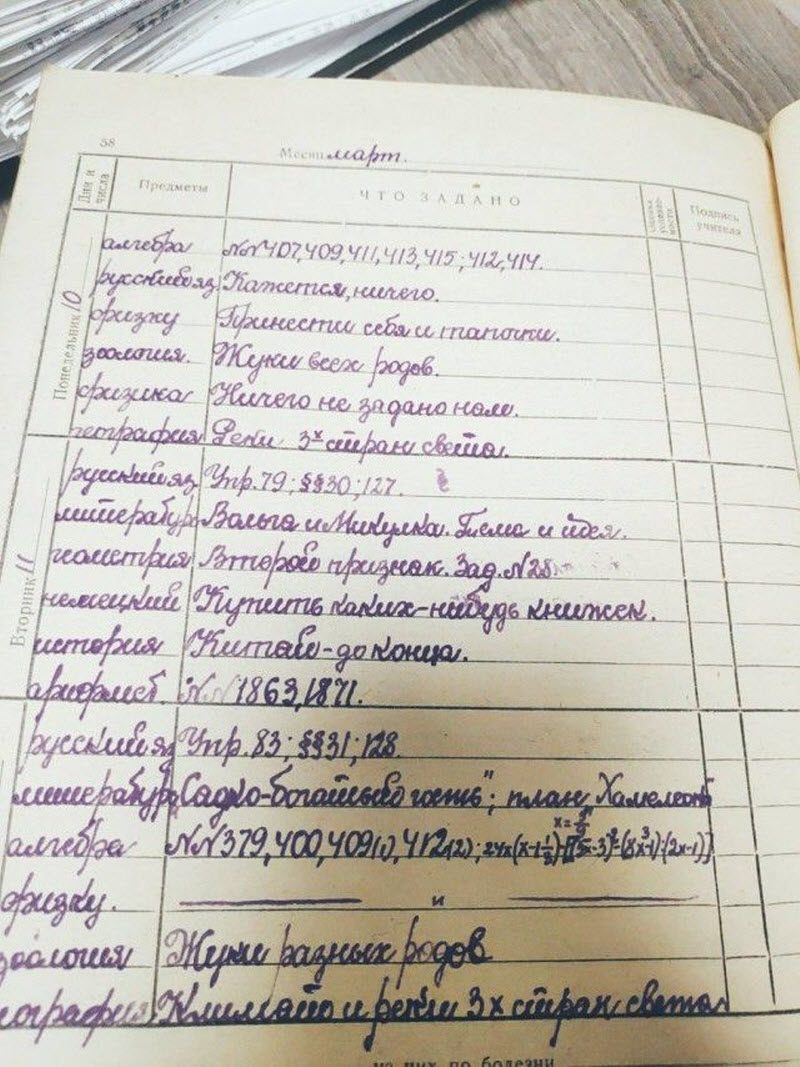 58
Месяц март.
Дни и числа Предметы ЧТО ЗАДАНО Оценка успеваемости Подпись учителя
Понедельник 10
алгебра №№ 407, 409, 411, 413, 415; 412, 414.
русский яз Кажется, ничего.
физку Принести себя и тапочки.
зоология. Жуки всех родов.
физика Ничего не задано нам.
география Реки 3х стран света.
Вторник 11
русский яз. Упр. 79; §§30; 127.
литератур Вольга и Микулка. Тема и идея.
геометрия Второй признак. Зад. №28
немецкий Купить каких-нибудь книжек.
история Китай - до конца.
арифмет. №№ 1863, 1871.
русский яз Упр. 83; §§31; 128.
литератур "Садко-богатый гость"; план Хамелеон
алгебра №№ 379, 400, 409(1), 412(2);
физку. и
зоология Жуки разных родов
география Климат и реки 3х стран света
из них по болезни